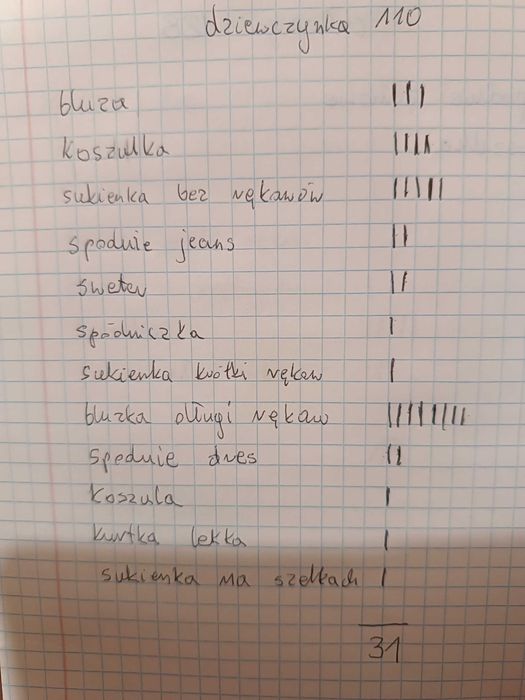 dziewczynka 110
bluza |||
koszulka ||||
sukienka bez rękawów |||||
spodnie jeans ||
sweter ||
spódniczka |
sukienka krótki rękaw |
bluzka długi rękaw ||||||||
spodnie dres ||
koszula |
kurtka lekka |
sukienka na szelkach |
31